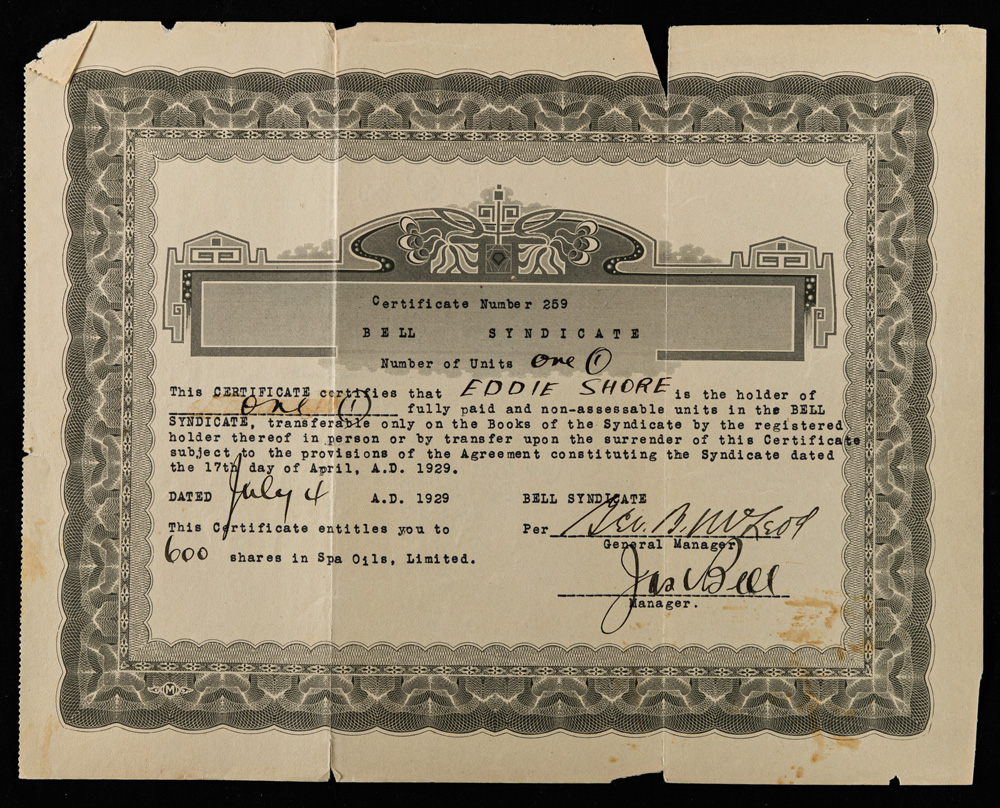 Certificate Number 259
BELL SYNDICATE
Number of Units One (1)
This CERTIFICATE certifies that EDDIE SHORE is the holder of
One (1) fully paid and non-assessable units in the BELL
SYNDICATE, transferable only on the Books of the Syndicate by the registered
holder thereof in person or by transfer upon the surrender of this Certificate
subject to the provisions of the Agreement constituting the Syndicate dated
the 17th day of April, A.D. 1929.
DATED July 4 A.D. 1929 BELL SYNDICATE
This Certificate entitles you to Per Geo. B. McLeod
General Manager
600 shares in Spa Oils, Limited.
Jas Bell
Manager.
M